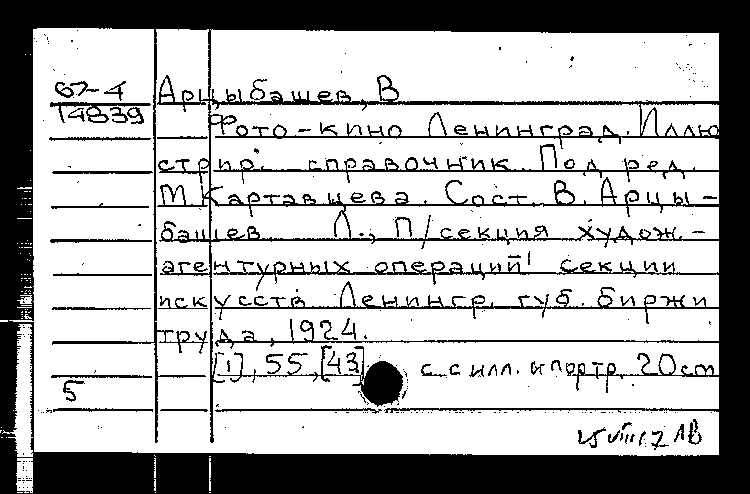 67-4 Арцыбашев, В
14839 Фото-кино Ленинград. Иллю
стрир. справочник. Под ред.
М. Картавцева. Сост. В. Арцы-
башев. Л., П/секция худож.-
агентурных операций секции
искусств Ленингр. губ. биржи
труда, 1924.
[1], 55, [43] с с илл. и портр. 20 см
5